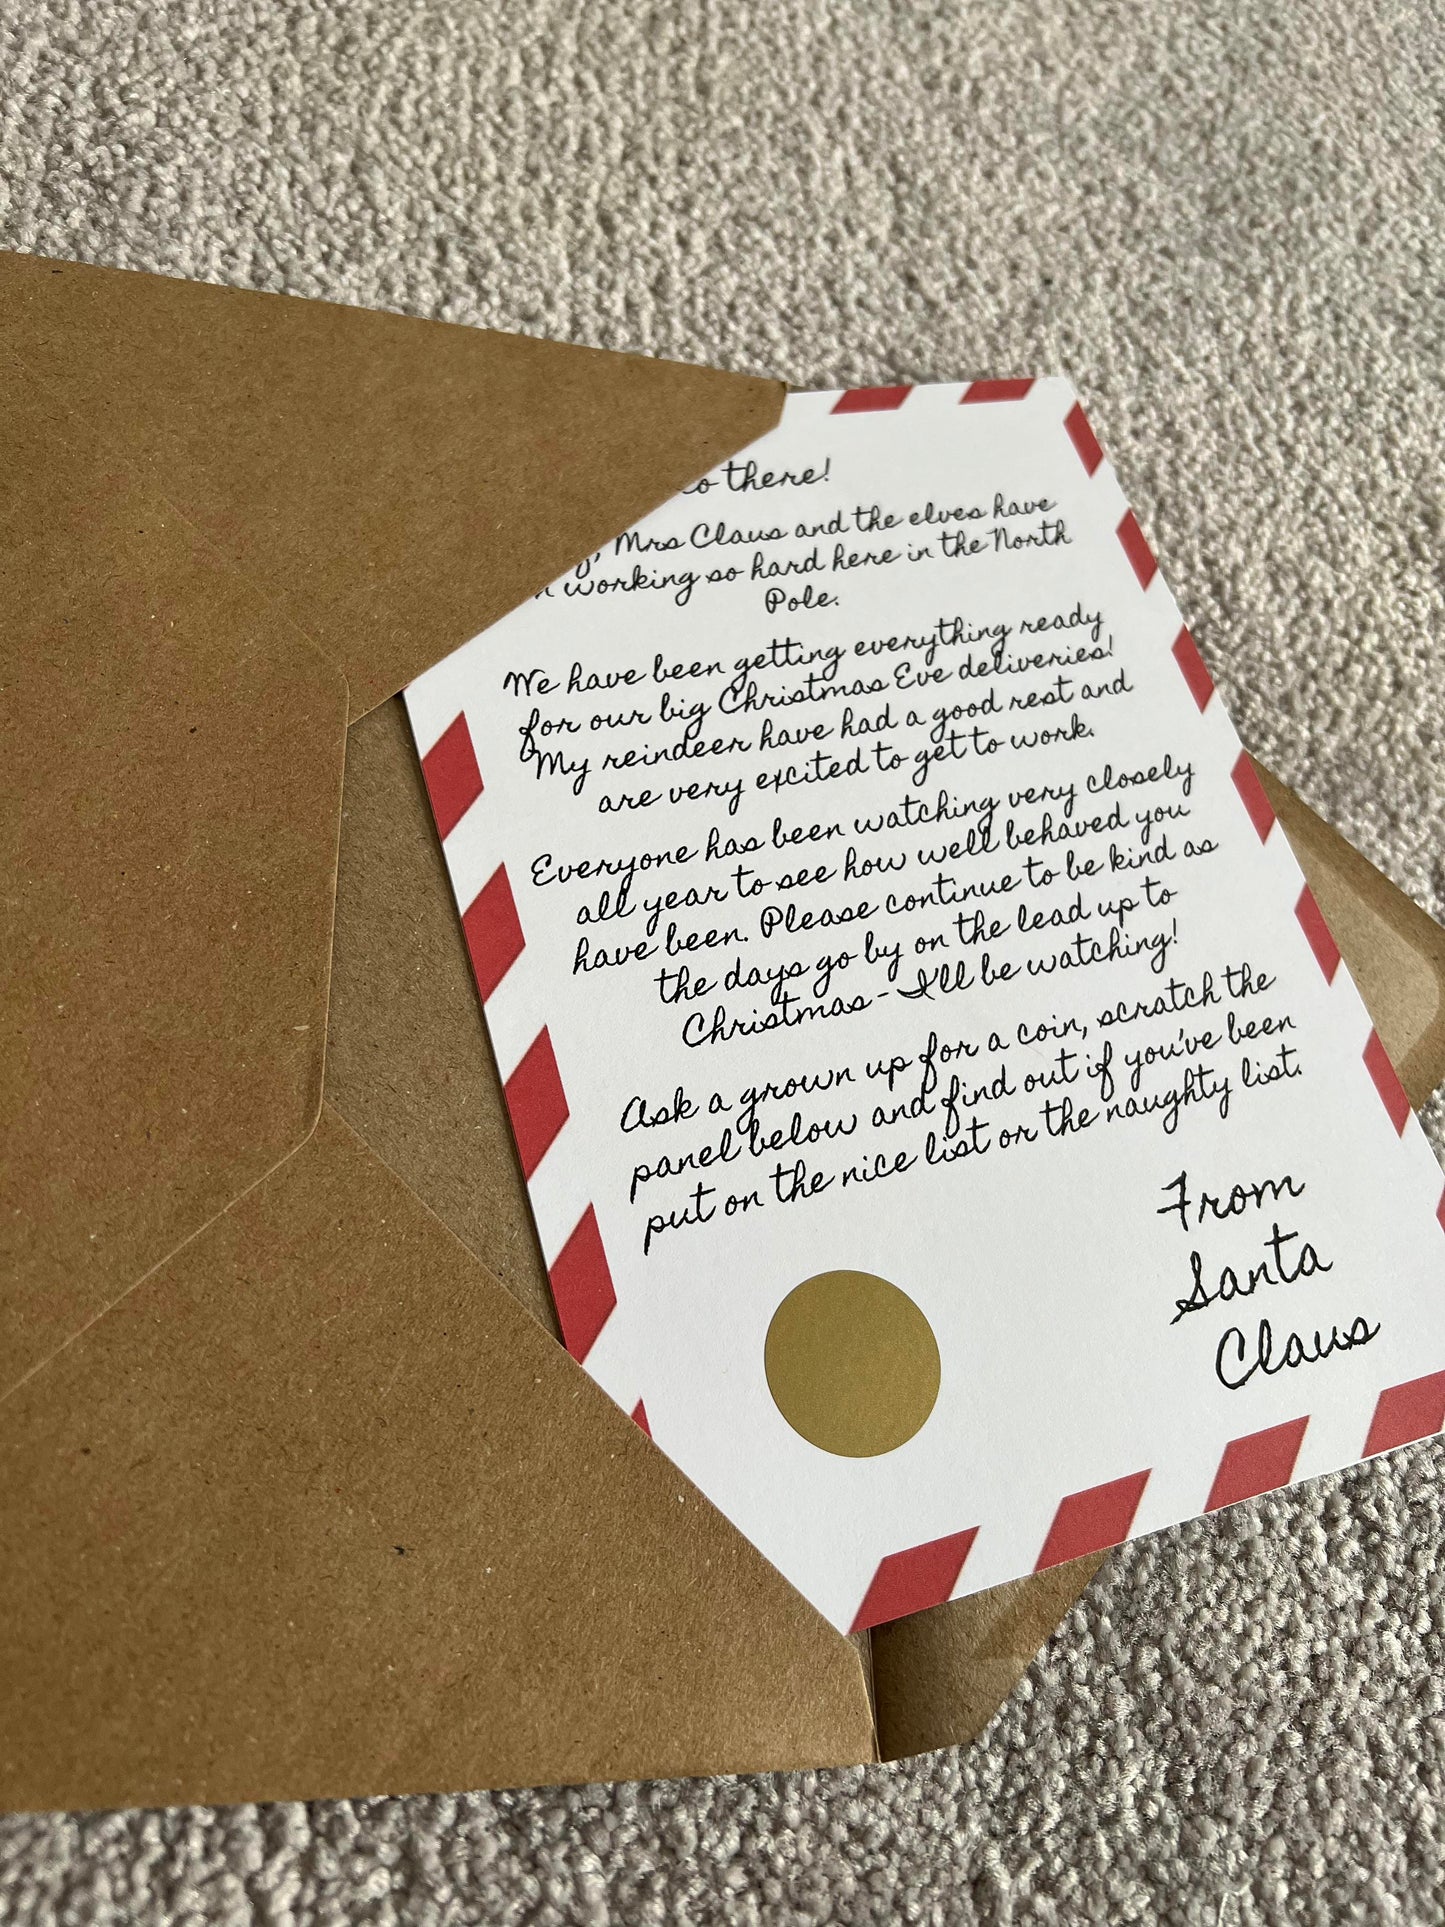 there!
Mrs Claus and the elves have
working so hard here in the North
Pole.
We have been getting everything ready
for our big Christmas Eve deliveries!
My reindeer have had a good rest and
are very excited to get to work.
Everyone has been watching very closely
all year to see how well behaved you
have been. Please continue to be kind as
the days go by on the lead up to
Christmas - I'll be watching!
Ask a grown up for a coin, scratch the
panel below and find out if you've been
put on the nice list or the naughty list.
From
Santa
Claus